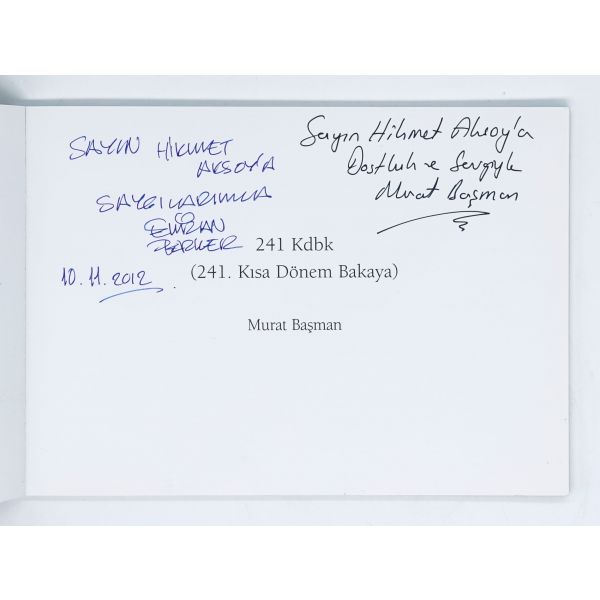 SAYIN HİKMET
AKSOY'A
SAYGILARIMLA
10.11.2012
Sayın Hikmet Aksoy'a
Dostluk ve Sevgiyle
Murat Başman
241 Kdbk
(241. Kısa Dönem Bakaya)
Murat Başman